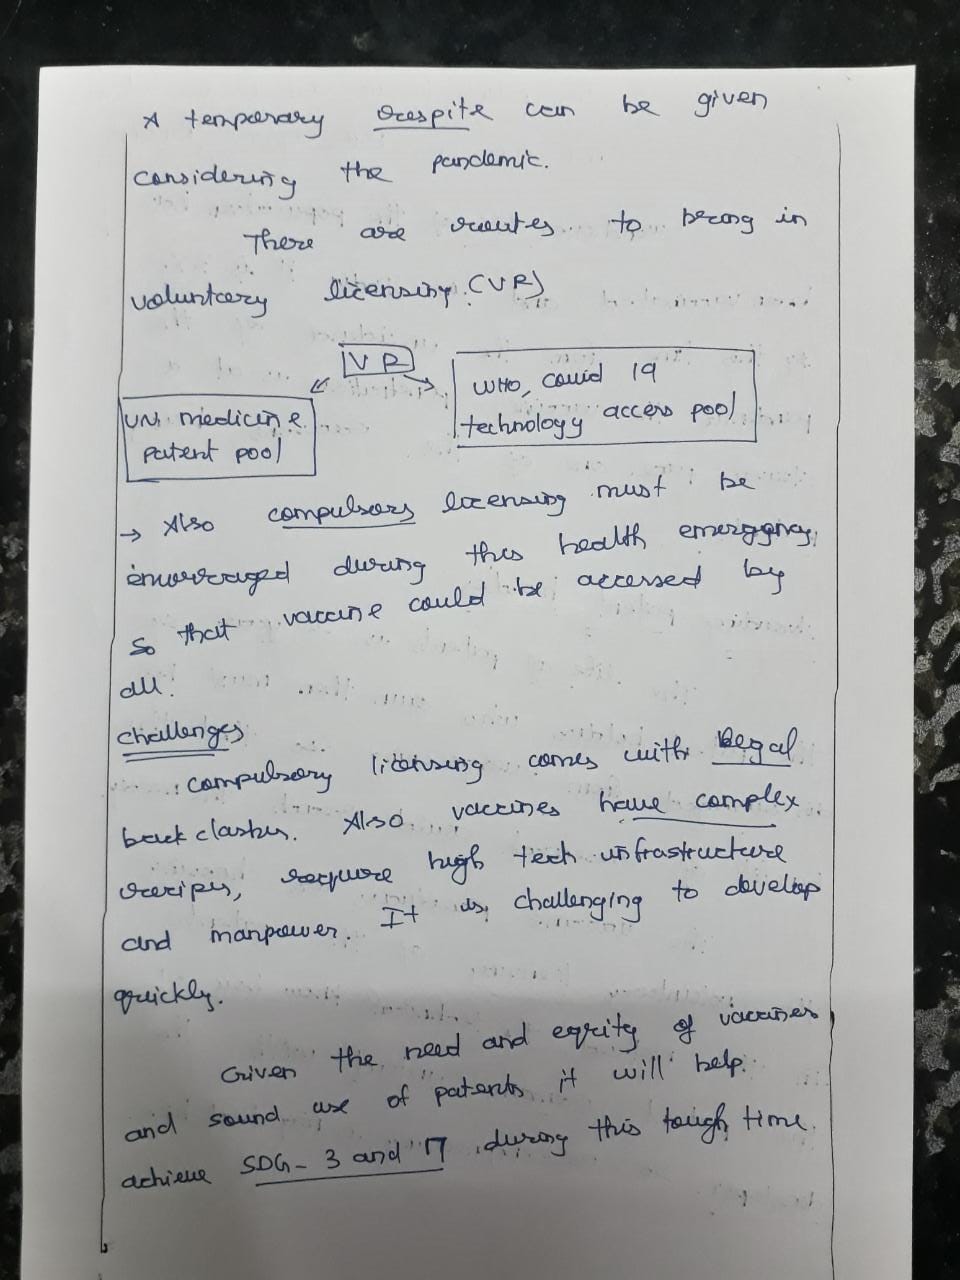 A temporary respite can be given
considering the pandemic.
There are routes to bring in
voluntary licensing (VR)
VR
UN medicine
patent pool
WHO, Covid 19
technology access pool
→ Also compulsory licensing must be
encouraged during this health emergency,
so that vaccine could be accessed by
all.
Challenges
Compulsory licensing comes with legal
back clashes. Also vaccines have complex
recipes, require high tech infrastructure
and manpower. It is challenging to develop
quickly.
Given the need and equity of vaccines
and sound use of patents it will help
achieve SDG-3 and 17 during this tough time.